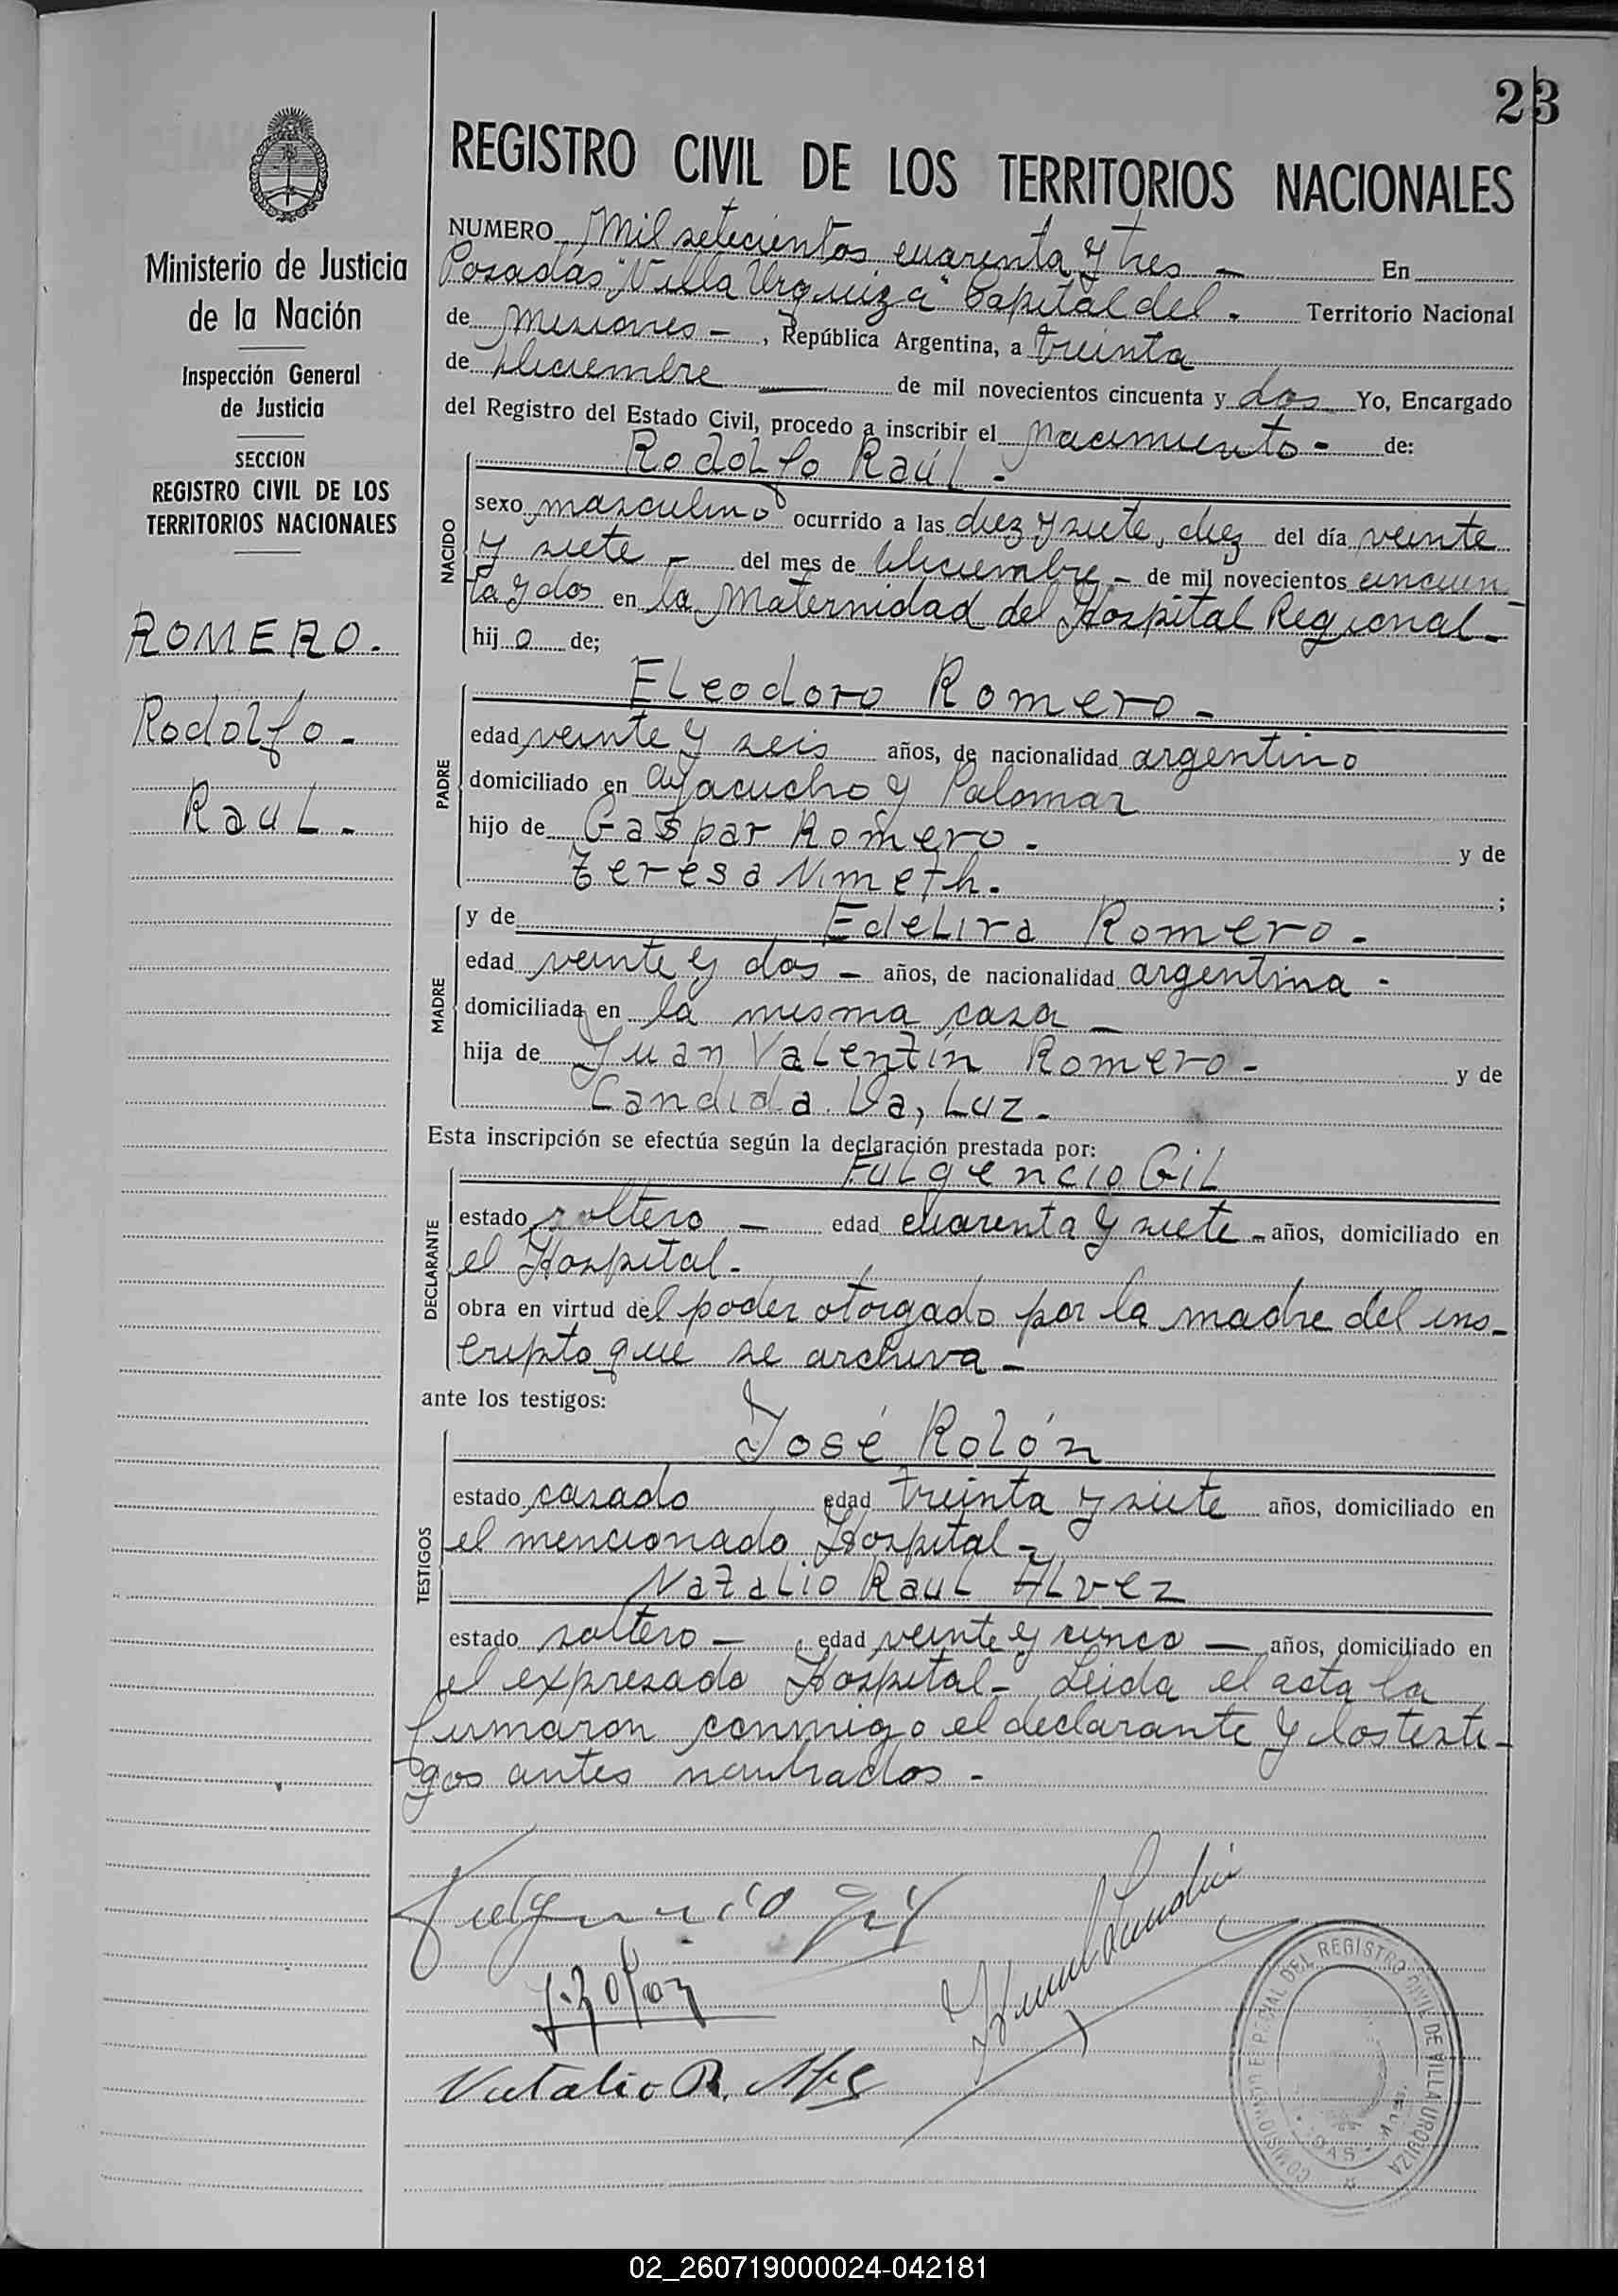 23
REGISTRO CIVIL DE LOS TERRITORIOS NACIONALES
Ministerio de Justicia
de la Nación
Inspección General
de Justicia
SECCION
REGISTRO CIVIL DE LOS
TERRITORIOS NACIONALES
ROMERO.
Rodolfo -
Raul -
NUMERO Mil setecientos cuarenta y tres - En
Posadas "Villa Urquiza" Capital del - Territorio Nacional
de Misiones - , República Argentina, a treinta
de Diciembre — de mil novecientos cincuenta y dos Yo, Encargado
del Registro del Estado Civil, procedo a inscribir el nacimiento - de:
Rodolfo Raúl -
NACIDO
sexo masculino ocurrido a las diez y siete, diez del día veinte
y siete - del mes de Diciembre - de mil novecientos cincuen
ta y dos en la Maternidad del Hospital Regional -
hij o de;
PADRE
Eleodoro Romero -
edad veinte y seis años, de nacionalidad argentino
domiciliado en Ayacucho y Palomar
hijo de Gaspar Romero - y de
Teresa Nimeth. ;
MADRE
y de Edelira Romero -
edad veinte y dos - años, de nacionalidad argentina -
domiciliada en la misma casa -
hija de Juan Valentín Romero - y de
Candida Da, Luz -
Esta inscripción se efectúa según la declaración prestada por:
DECLARANTE
Fulgencio Gil
estado soltero - edad cuarenta y siete - años, domiciliado en
el Hospital -
obra en virtud del poder otorgado por la madre del ins-
cripto que se archiva -
ante los testigos:
TESTIGOS
José Rolón
estado casado edad treinta y siete años, domiciliado en
el mencionado Hospital -
Natalio Raul Alvez
estado soltero - edad veinte y cinco - años, domiciliado en
el expresado Hospital - Leida el acta la
firmaron conmigo el declarante y los testi-
gos antes nombrados -
Fulgencio Gil
J. Rolon
Natalio R.
DEL REGISTRO CIVIL DE VILLA URQUIZA
02_260719000024-042181